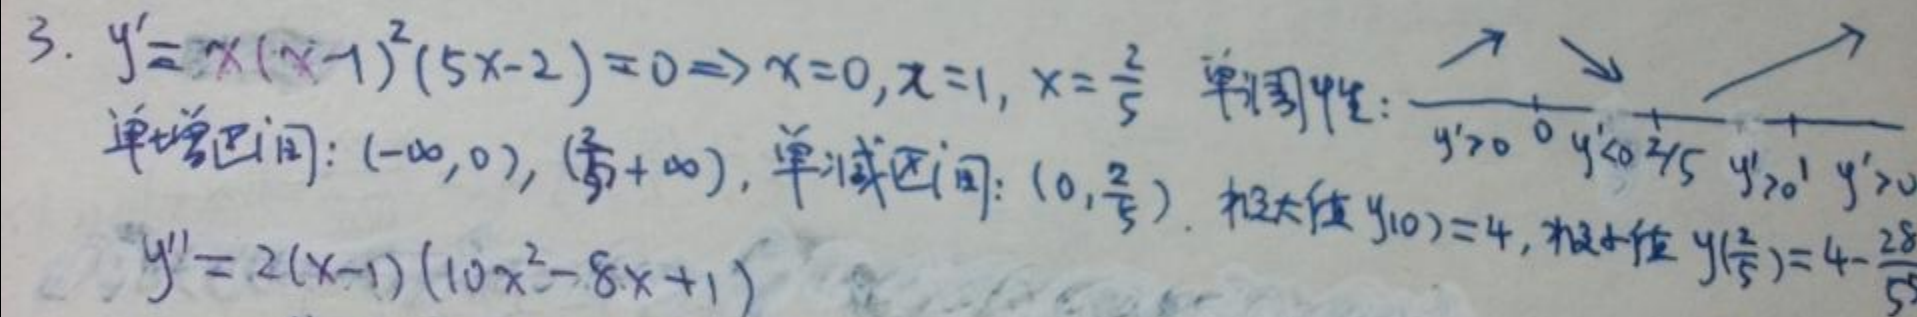 3. y′=x(x-1)²(5x-2)=0⇒x=0,x=1,x=2/5 单调性: y′>0 0 y′<0 2/5 y′>0 1 y′>0
单增区间:(-∞,0),(2/5,+∞),单减区间:(0,2/5).极大值y(0)=4,极小值y(2/5)=4-
y″=2(x-1)(10x²-8x+1)